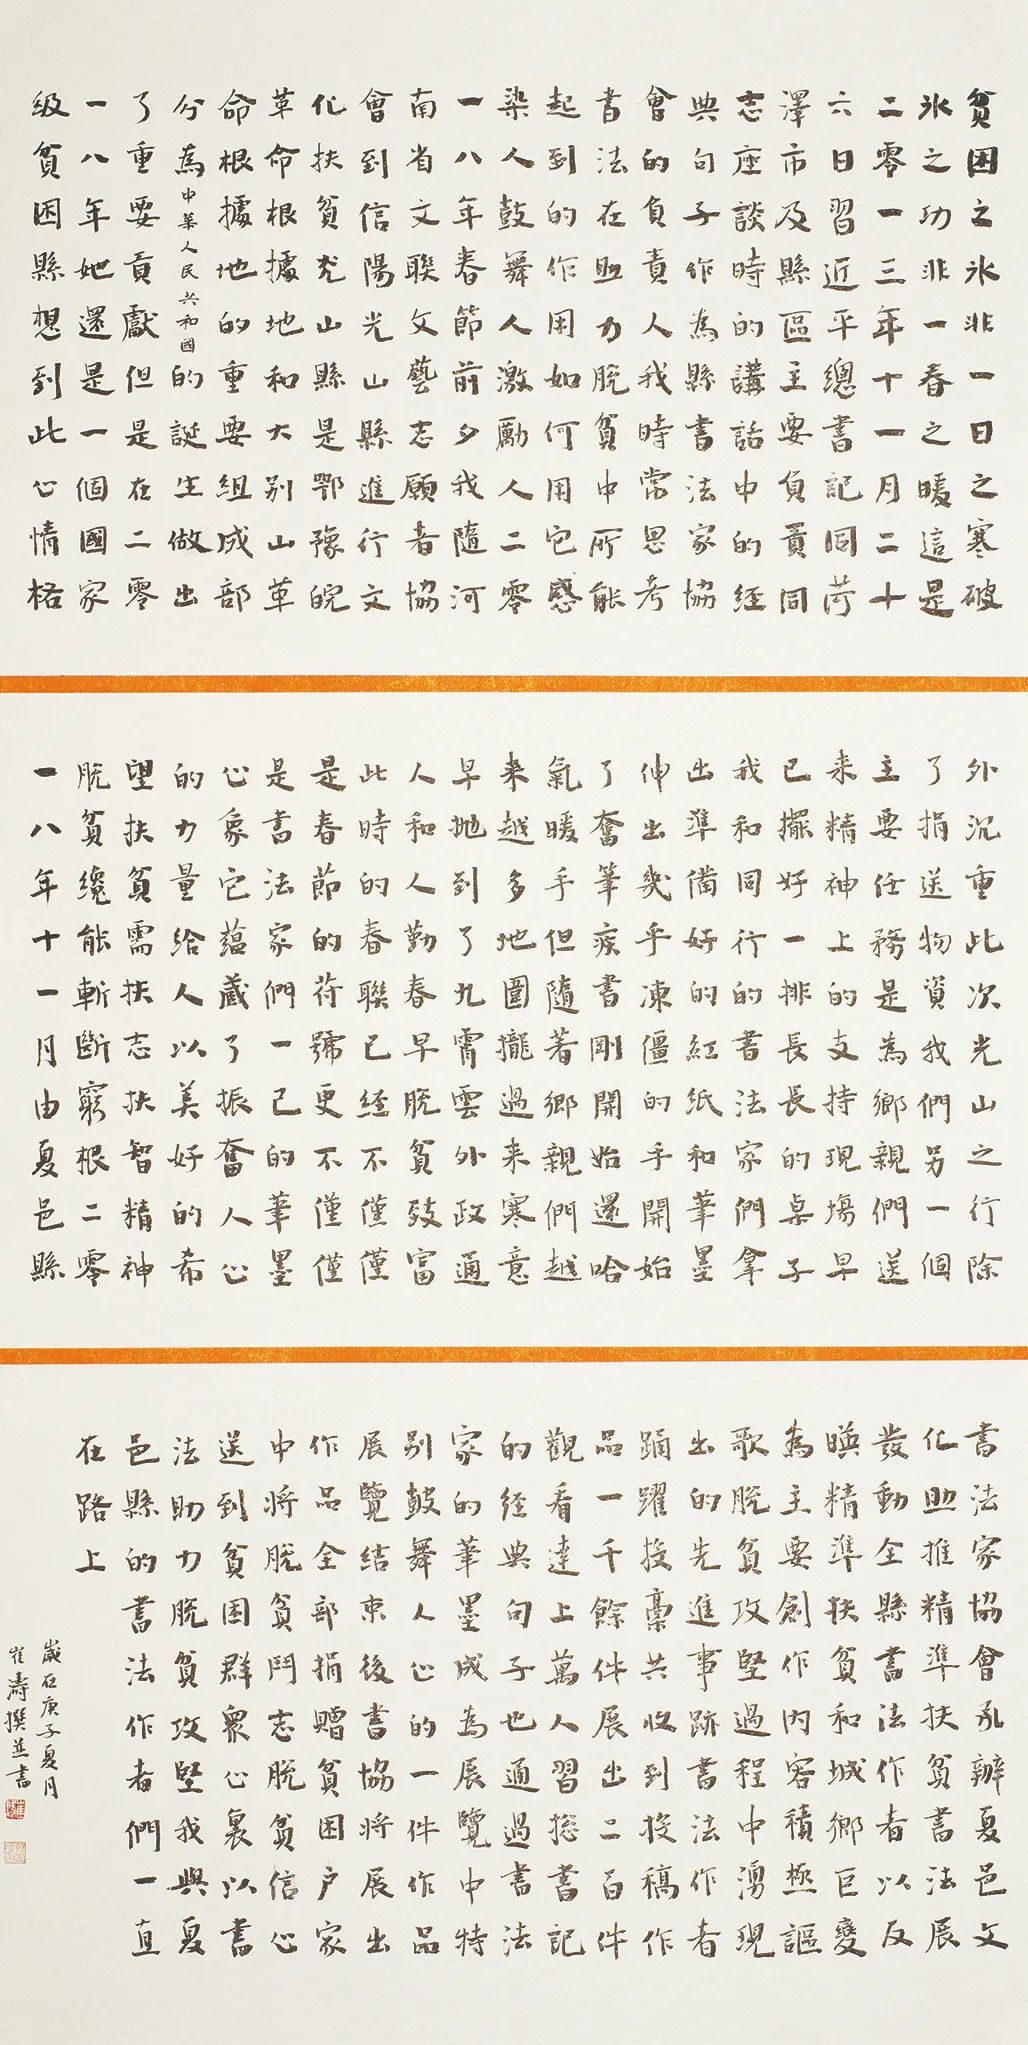 貧困之冰非一日之寒破
冰之功非一春之暖這是
二零一三年十一月二十
六日習近平總書記同菏
澤市及縣區主要負責同
志座談時的講話中的經
典句子作為縣書法家協
會的負責人我時常思考
書法在助力脫貧中所能
起到的作用如何用它感
染人鼓舞人激勵人二零
一八年春節前夕我隨河
南省文聯文藝志願者協
會到信陽光山縣進行文
化扶貧光山縣是鄂豫皖
革命根據地和大別山革
命根據地的重要組成部
分為中華人民共和國的誕生做出
了重要貢獻但是在二零
一八年她還是一個國家
级貧困縣想到此心情格
外沉重此次光山之行除
了捐送物資我們另一個
主要任務是為鄉親們送
来精神上的支持現場早
已擺好一排長長的桌子
我和同行的書法家們拿
出準備好的紅紙和筆墨
伸出幾乎凍僵的手開始
了奮筆疾書剛開始還哈
氣暖手但隨著鄉親們越
来越多地圍攏過来寒意
早抛到了九霄雲外政通
人和人勤春早脫貧致富
此時的春聯已經不僅僅
是春節的符號更不僅僅
是書法家們一己的筆墨
心象它蕴藏了振奮人心
的力量給人以美好的希
望扶貧需扶志扶智精神
脫貧纔能斬斷窮根二零
一八年十一月由夏邑縣
書法家協會承辦夏邑文
化助推精準扶貧書法展
發動全縣書法作者以反
映精準扶貧和城鄉巨變
為主要創作内容積極謳
歌脫貧攻堅過程中湧現
出的先進事跡書法作者
踊躍投稾共收到投稿作
品一千餘件展出二百件
觀看達上萬人習総書記
的經典句子也通過書法
家的筆墨成為展覽中特
别鼓舞人心的一件作品
展覽結束後書協將展出
作品全部捐贈貧困户家
中將脫貧鬥志脫貧信心
送到貧困群衆心裏以書
法助力脫貧攻堅我與夏
邑縣的書法作者們一直
在路上
歲在庚子夏月
崔濤撰並書